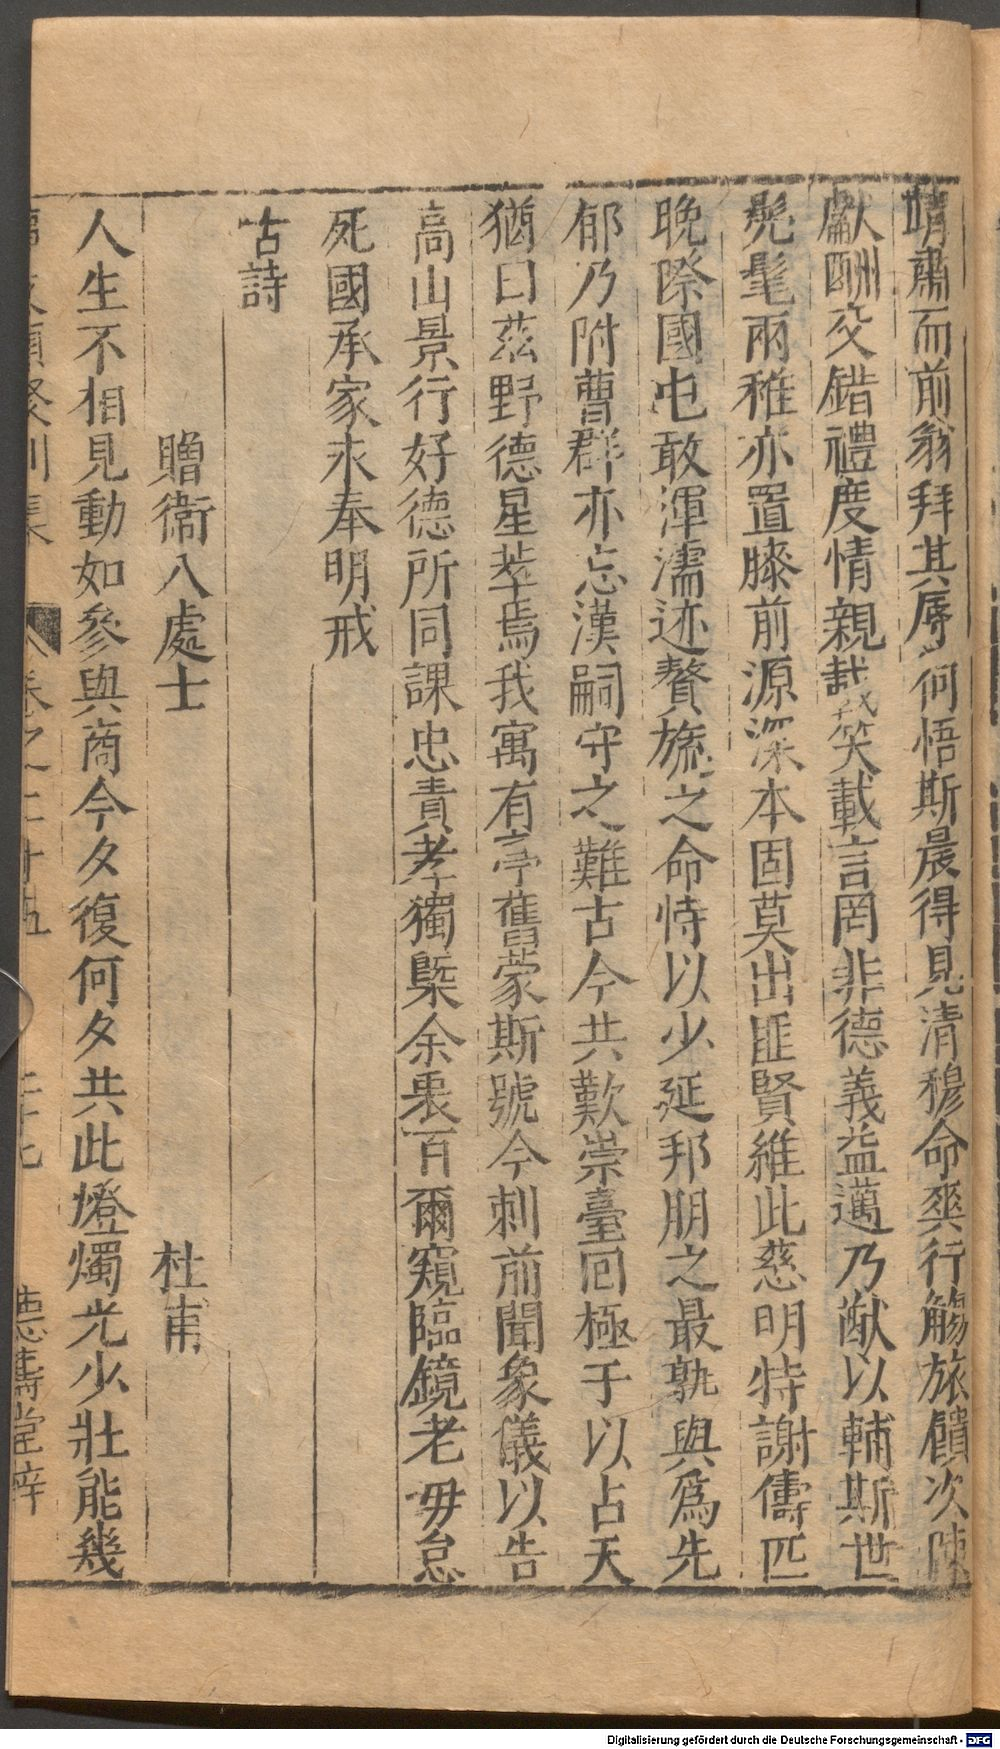 靖肅而前翁拜其辱何悟斯晨得見清穆命爽行觴旅饋次陳
獻酬交錯禮度情親載笑載言罔非德義益邁乃猷以輔斯世
髧髦兩稚亦置膝前源深本固莫出匪賢維此慈明特謝儔匹
晚際國屯敢渾濡迹贅旒之命恃以少延邦朋之最孰與爲先
郁乃附曹群亦忘漢嗣守之難古今共歎崇臺回極于以占天
猶曰茲野德星萃焉我寓有亭舊蒙斯號今刺前聞象儀以告
高山景行好德所同課忠責孝獨槩余衷百爾窺臨鏡考毋怠
死國承家永奉明戒
古詩
贈衞八處士 杜甫
人生不相見動如參與商今夕復何夕共此燈燭光少壯能幾
卷之二十五 二十七 德壽堂梓
Digitalisierung gefördert durch die Deutsche Forschungsgemeinschaft - DFG